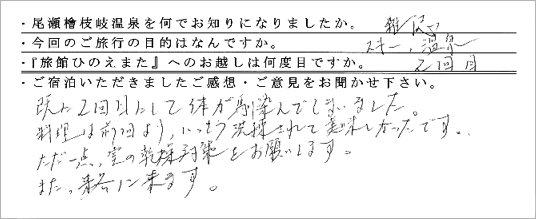 ・尾瀬檜枝岐温泉を何でお知りになりましたか。 雑誌
・今回のご旅行の目的はなんですか。 スキー、温泉
・『旅館ひのえまた』へのお越しは何度目ですか。 2回目
・ご宿泊いただきましたご感想・ご意見をお聞かせ下さい。
既に2回目にして体が馴染んでしまいました。
料理は前回より、いっそう洗練されて美味しかったです。
ただ一点、室の乾燥対策をお願いします。
また、来冬に来ます。